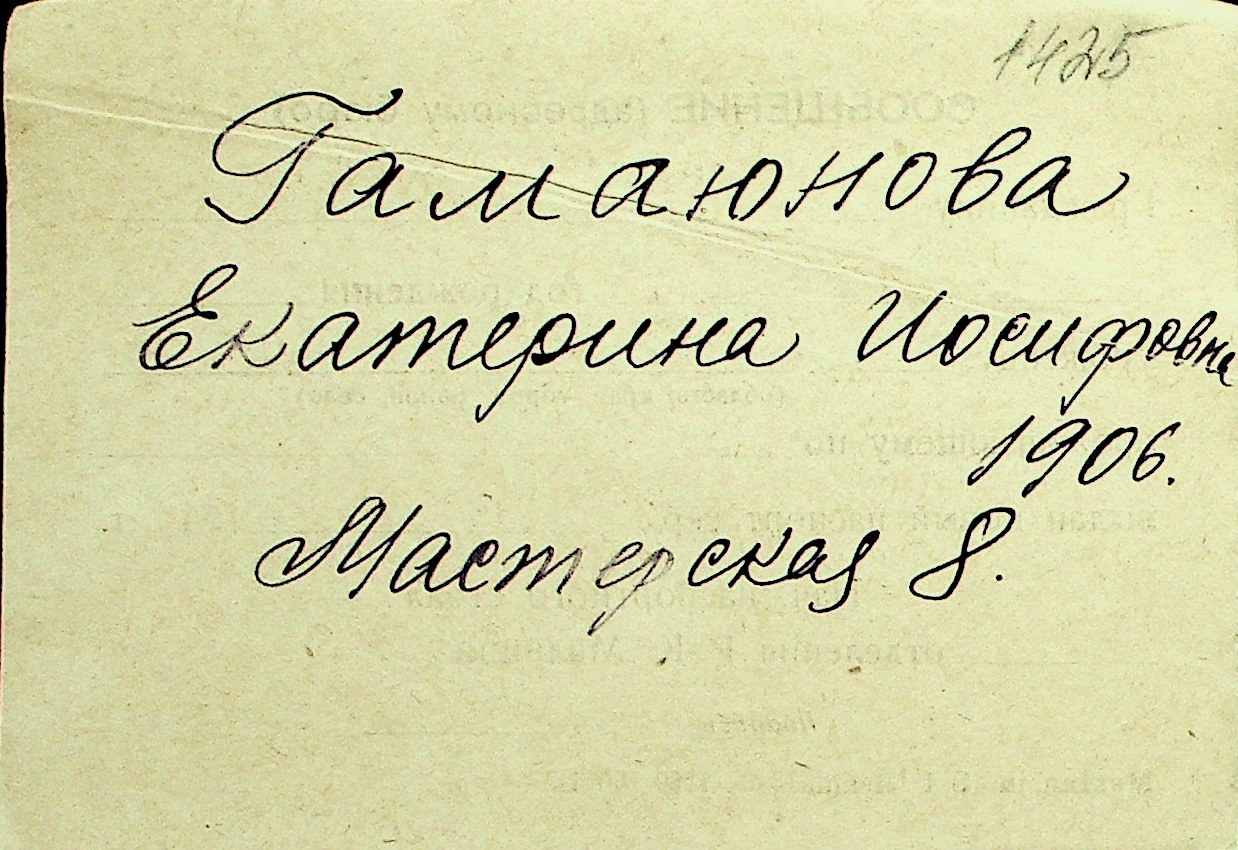 1425
Гамаюнова
Екатерина Иосифовна
1906.
Мастерская 8.